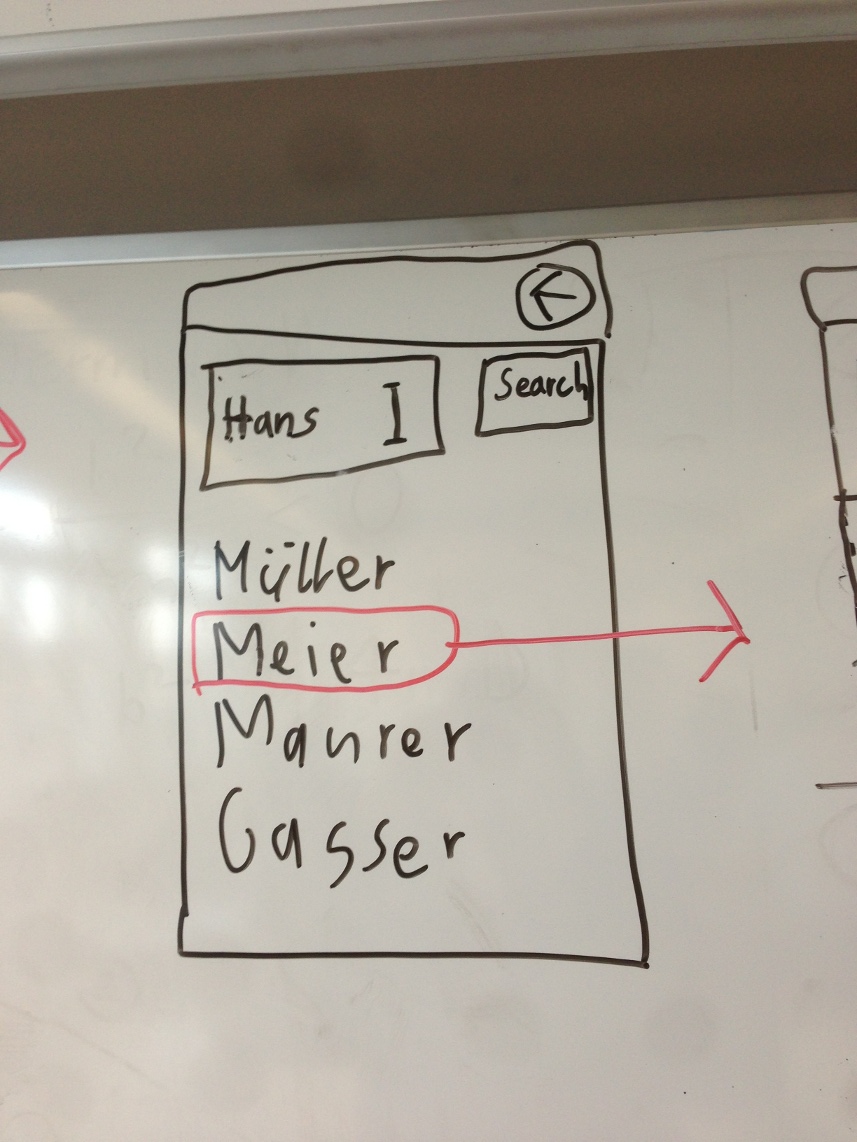 Hans
Search
Müller
Meier
Maurer
Gasser